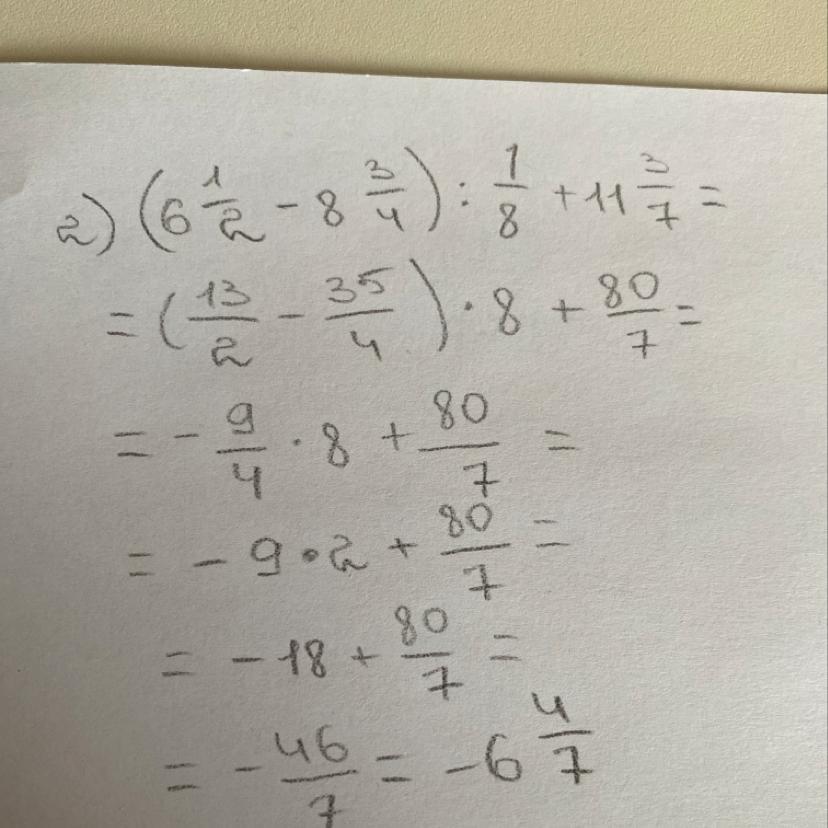 2) (6 1/2 - 8 3/4) : 1/8 + 11 3/7 =
= (13/2 - 35/4) · 8 + 80/7 =
= - 9/4 · 8 + 80/7 =
= - 9 · 2 + 80/7 =
= - 18 + 80/7 =
= - 46/7 = - 6 4/7